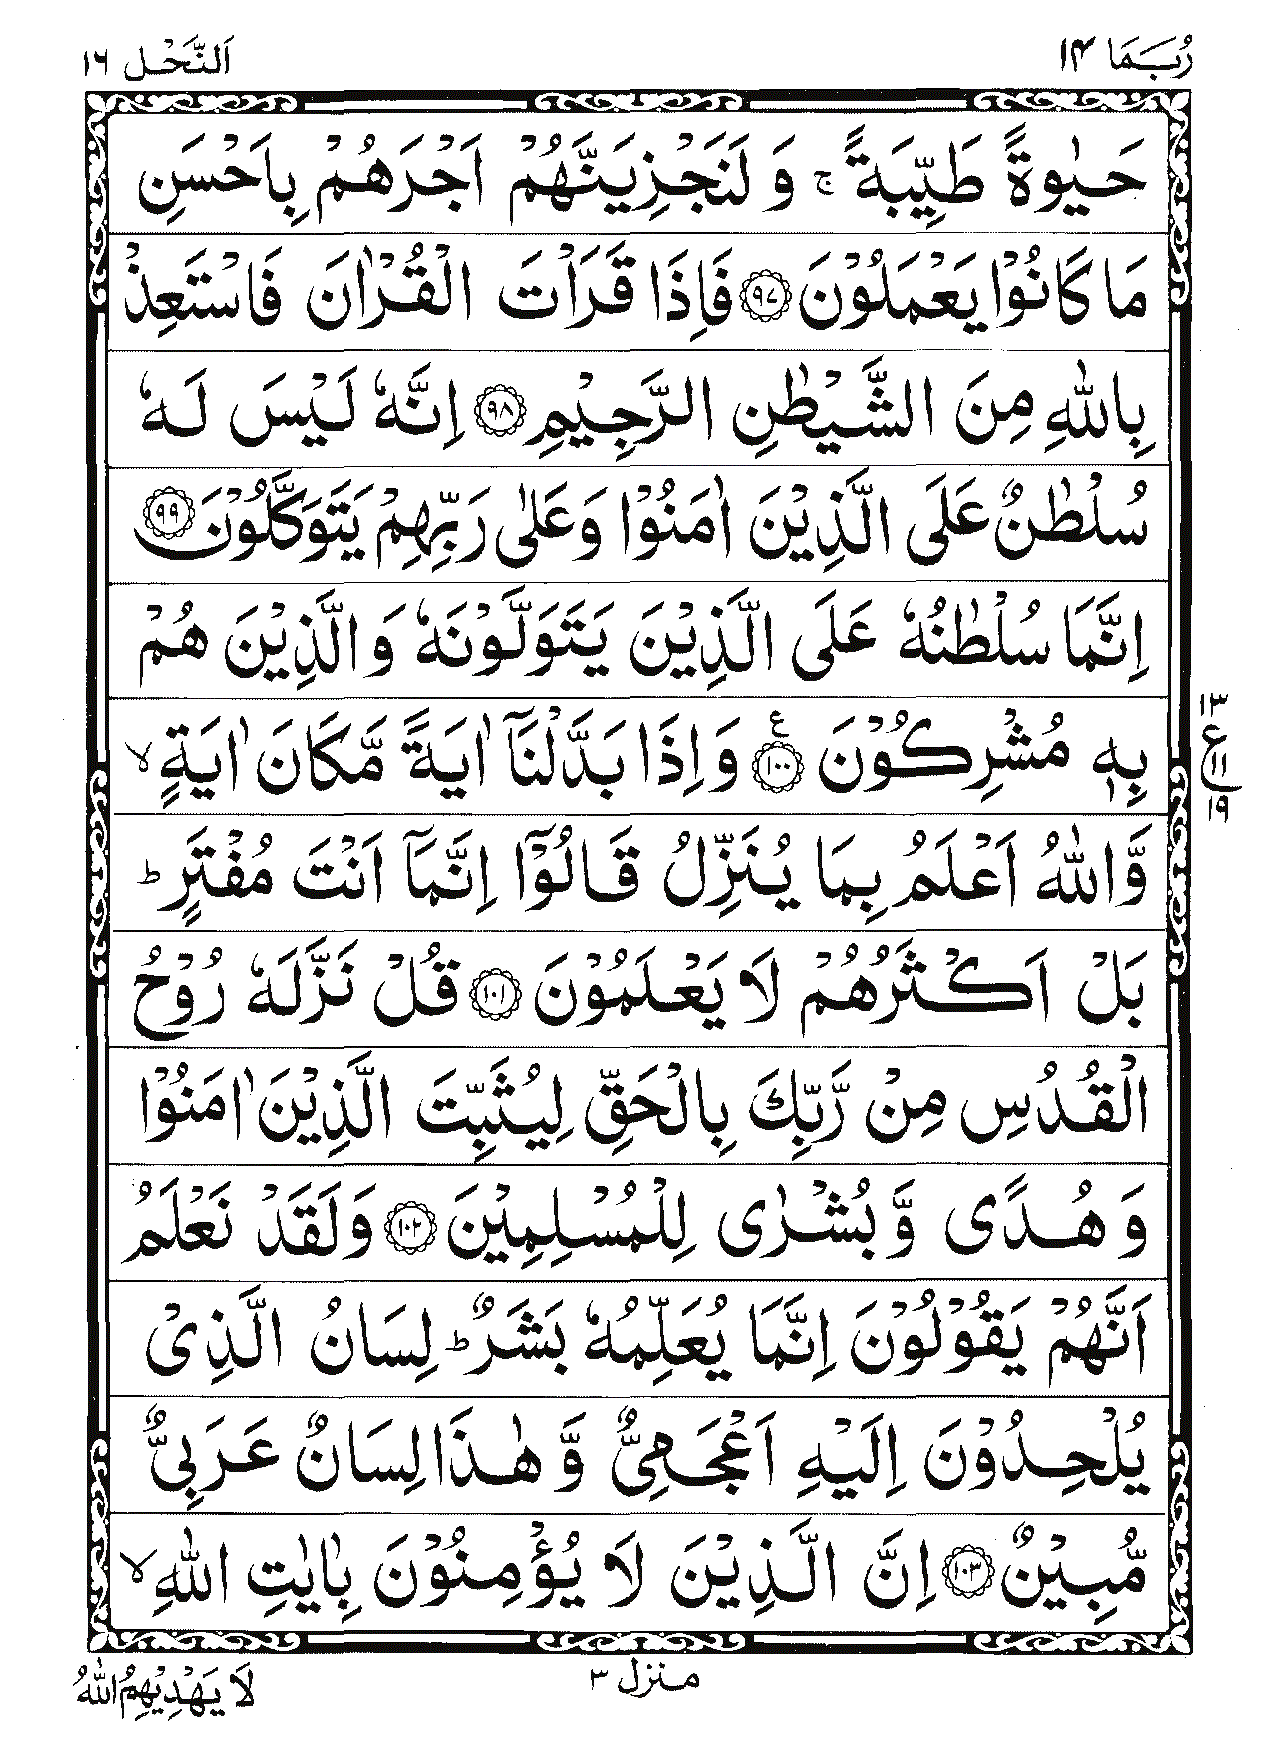 رُبَمَا ١٤
اَلنَّحْل ١٦
حَيٰوةً طَيِّبَةً ۚ وَ لَنَجْزِيَنَّهُمْ اَجْرَهُمْ بِاَحْسَنِ
مَا كَانُوْا يَعْمَلُوْنَ ﴿۹۷﴾ فَاِذَا قَرَاْتَ الْقُرْاٰنَ فَاسْتَعِذْ
بِاللّٰهِ مِنَ الشَّيْطٰنِ الرَّجِيْمِ ﴿۹۸﴾ اِنَّهٗ لَيْسَ لَهٗ
سُلْطٰنٌ عَلَى الَّذِيْنَ اٰمَنُوْا وَعَلٰى رَبِّهِمْ يَتَوَكَّلُوْنَ ﴿۹۹﴾
اِنَّمَا سُلْطٰنُهٗ عَلَى الَّذِيْنَ يَتَوَلَّوْنَهٗ وَالَّذِيْنَ هُمْ
بِهٖ مُشْرِكُوْنَ ﴿۱۰۰﴾ ع وَاِذَا بَدَّلْنَآ اٰيَةً مَّكَانَ اٰيَةٍ ۙ
١٣
ع
١١
١٩
وَّاللّٰهُ اَعْلَمُ بِمَا يُنَزِّلُ قَالُوْٓا اِنَّمَآ اَنْتَ مُفْتَرٍ ؕ
بَلْ اَكْثَرُهُمْ لَا يَعْلَمُوْنَ ﴿۱۰۱﴾ قُلْ نَزَّلَهٗ رُوْحُ
الْقُدُسِ مِنْ رَّبِّكَ بِالْحَقِّ لِيُثَبِّتَ الَّذِيْنَ اٰمَنُوْا
وَ هُدًى وَّ بُشْرٰى لِلْمُسْلِمِيْنَ ﴿۱۰۲﴾ وَلَقَدْ نَعْلَمُ
اَنَّهُمْ يَقُوْلُوْنَ اِنَّمَا يُعَلِّمُهٗ بَشَرٌ ؕ لِسَانُ الَّذِيْ
يُلْحِدُوْنَ اِلَيْهِ اَعْجَمِيٌّ وَّ هٰذَا لِسَانٌ عَرَبِيٌّ
مُّبِيْنٌ ﴿۱۰۳﴾ اِنَّ الَّذِيْنَ لَا يُؤْمِنُوْنَ بِاٰيٰتِ اللّٰهِ ۙ
منزل ٣
لَا يَهْدِيْهِمُ اللّٰهُ